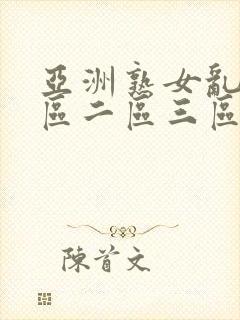 亞洲熟女亂
區二區三區
陳首文